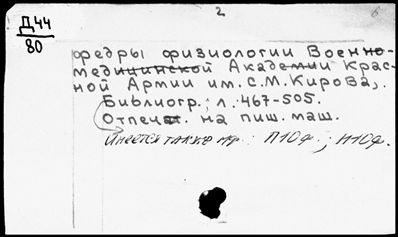 2
Д44
80
федры физиологии Военно-
медицинской Академии Крас-
ной Армии им. С.М. Кирова,.
Библиогр.: л. 467-505.
Отпечат. на пиш. маш.
Имеется также мф.: П10ф.; Н10ф.